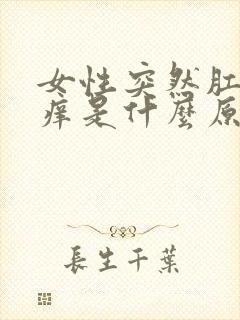 女性突然肛
痒是什麼原
長生千葉